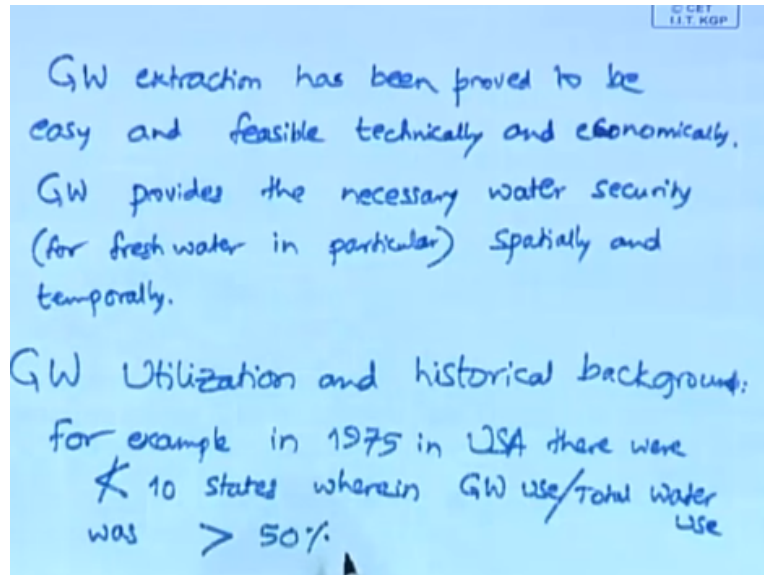 © CET
I.I.T. KGP
GW extraction has been proved to be
easy and feasible technically and economically.
GW provides the necessary water security
(for fresh water in particular) spatially and
temporally.
GW Utilization and historical background:
for example in 1975 in USA there were
≮ 10 states wherein GW use/Total water
use
was > 50%